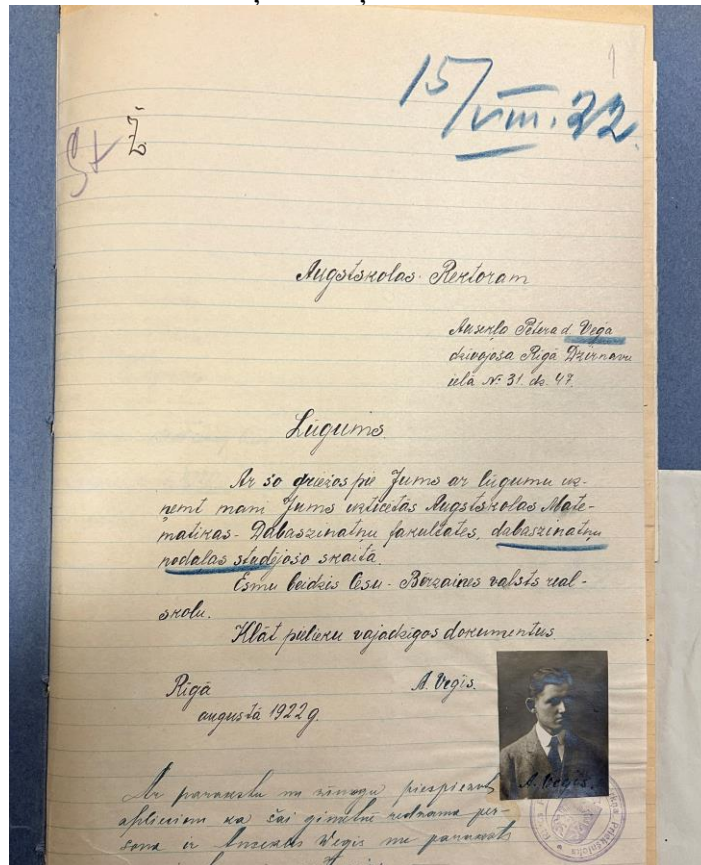 1
15/VIII.22.
St Ž
Augstskolas Rektoram
Ansekļa Pētera d. Vega
dzīvojoša Rīgā Dzirnavu
ielā № 31. dz. 47.
Lūgums.
Ar šo griežos pie Jums ar lūgumu uz-
ņemt mani Jums uzticētās Augstskolas Mate-
matikas-Dabaszinatņu fakultātes, dabaszinatņu
nodaļas studējošo skaitā.
Esmu beidzis Cēsu-Bērzaines valsts real-
skolu.
Klāt pielieku vajadzīgos dokumentus
Rīgā A. Veģis.
augustā 1922 g.
A. Veģis.
Ar parakstu un zīmogu piespiestu
apliecinu ka šai ģīmetnē redzamā per-
sona ir Anseklis Veģis un parakstī